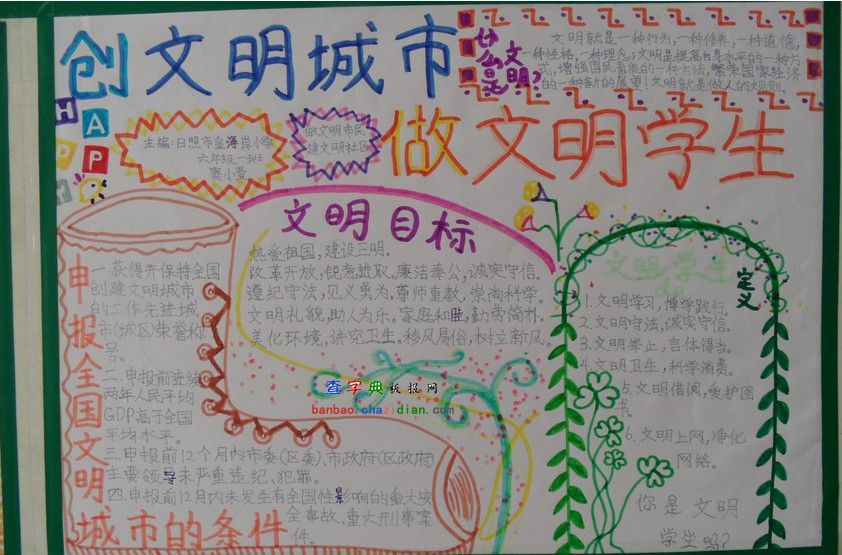 创文明城市
什么是文明?
文明就是一种行为,一种修养,一种道德,
一种性格,一种理念,文明是提高自身水平的一种方
式,增强国民素质的一种方法,繁荣国家经济
的一种新的展望!文明就是做人的规则。
HAPP
主编:日照市金海岸小学
六年级一班
窦小萱
做文明市民
建文明社区
做文明学生
文明目标
热爱祖国,建设三明。
改革开放,锐意进取。廉洁奉公,诚实守信。
遵纪守法,见义勇为。尊师重教,崇尚科学。
文明礼貌,助人为乐。家庭和睦,勤劳简朴。
美化环境,讲究卫生。移风易俗,树立新风。
申报全国文明
城市的条件
一.获得并保持全国
创建文明城市
的工作先进城
市(城区)荣誉称
号。
二.申报前连续
两年人民平均
GDP高于全国
平均水平。
三.申报前12个月内市委(区委),市政府(区政府)
主要领导未严重违纪、犯罪。
四.申报前12月内未发生有全国性影响的重大
全事故,重大刑事案
件。
文明学生
定义
1.文明学习,博学践行。
2.文明守法,诚实守信。
3.文明举止,言体得当。
4.文明卫生,科学消费。
5.文明借阅,爱护图
书。
6.文明上网,净化
网络。
你是文明
学生吗?
查字典板报网
banbao.chazidian.com